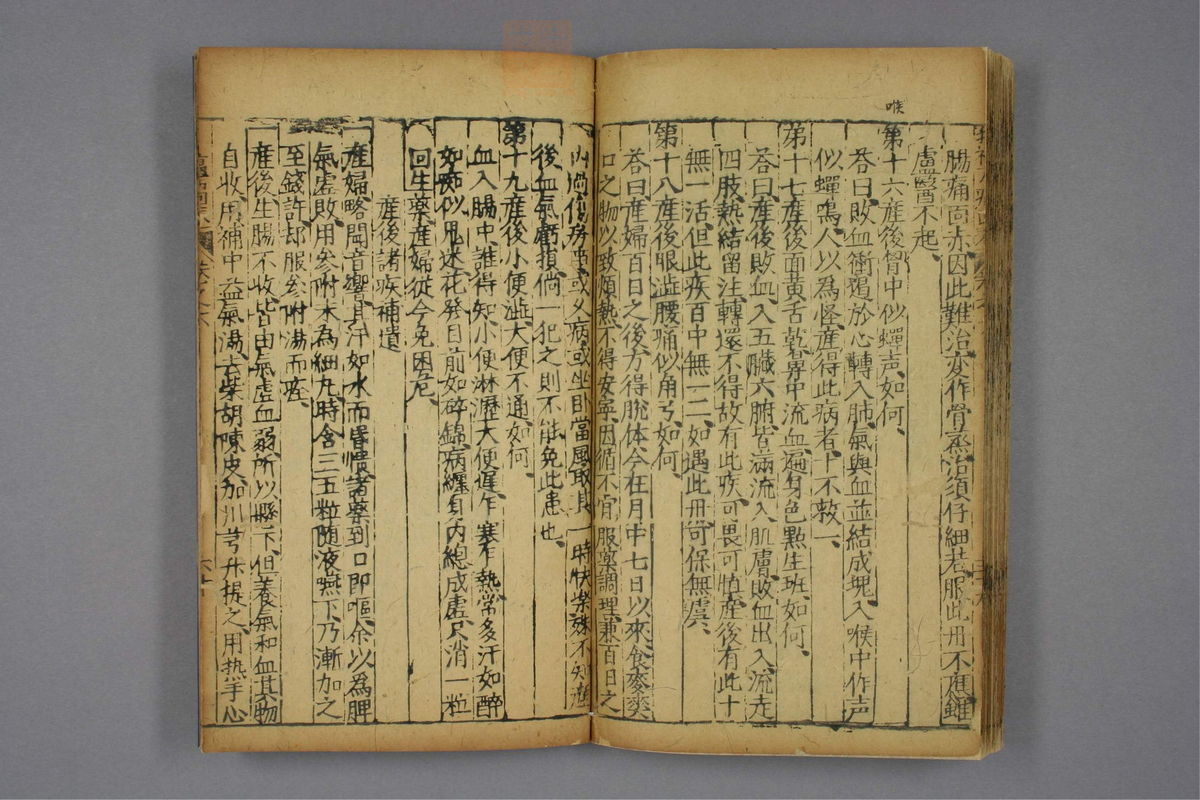 喉
腸痛面赤因此難治変作骨蒸治須仔細若服此丹不應雖
盧醫不起
第十六産後骨中似蟬声如何
荅曰敗血衝逼於心轉入肺氣與血並結成塊入喉中作声
似蟬鳴人以為怪産得此病者十不救一
苐十七産後面黃舌乾鼻中流血遍身色點生班如何
荅曰産後敗血入五臓六腑皆滿流入肌膚敗血出入流走
四肢熱結留注轉還不得故有此疾可畏可怕産後有此十
無一活但此疾百中無一二如遇此丹可保無虞
第十八産後眼澁腰痛似角弓如何
荅曰産婦百日之後方得脫体今在月中七日以來食麥麵
口之物以致煩熱不得安寧因循不肯服藥調理兼百日之
内房或父病或坐卧當風取一時快樂殊不知産
後血氣虧損倘一犯之則不能免此患也
第十九産後小便澁大便不通如何
血入腸中誰得知小便淋瀝大便遲乍寒乍熱常多汗如醉
如痴似鬼迷花發目前如碎錦病纏身内總成虛只消一粒
回生藥産婦從今免困危
産後諸疾補遺
産婦略聞音響其汗如水而昏憒諸藥到口即嘔余以為脾
氣虛敗用參附末為細丸時含三五粒随液嚥下乃漸加之
至錢許却服參附湯而痊
産後生腸不收皆由氣虛血弱所以懸下但養氣和血其物
自收用補中益氣湯去柴胡陳皮加川芎升提之用热手心